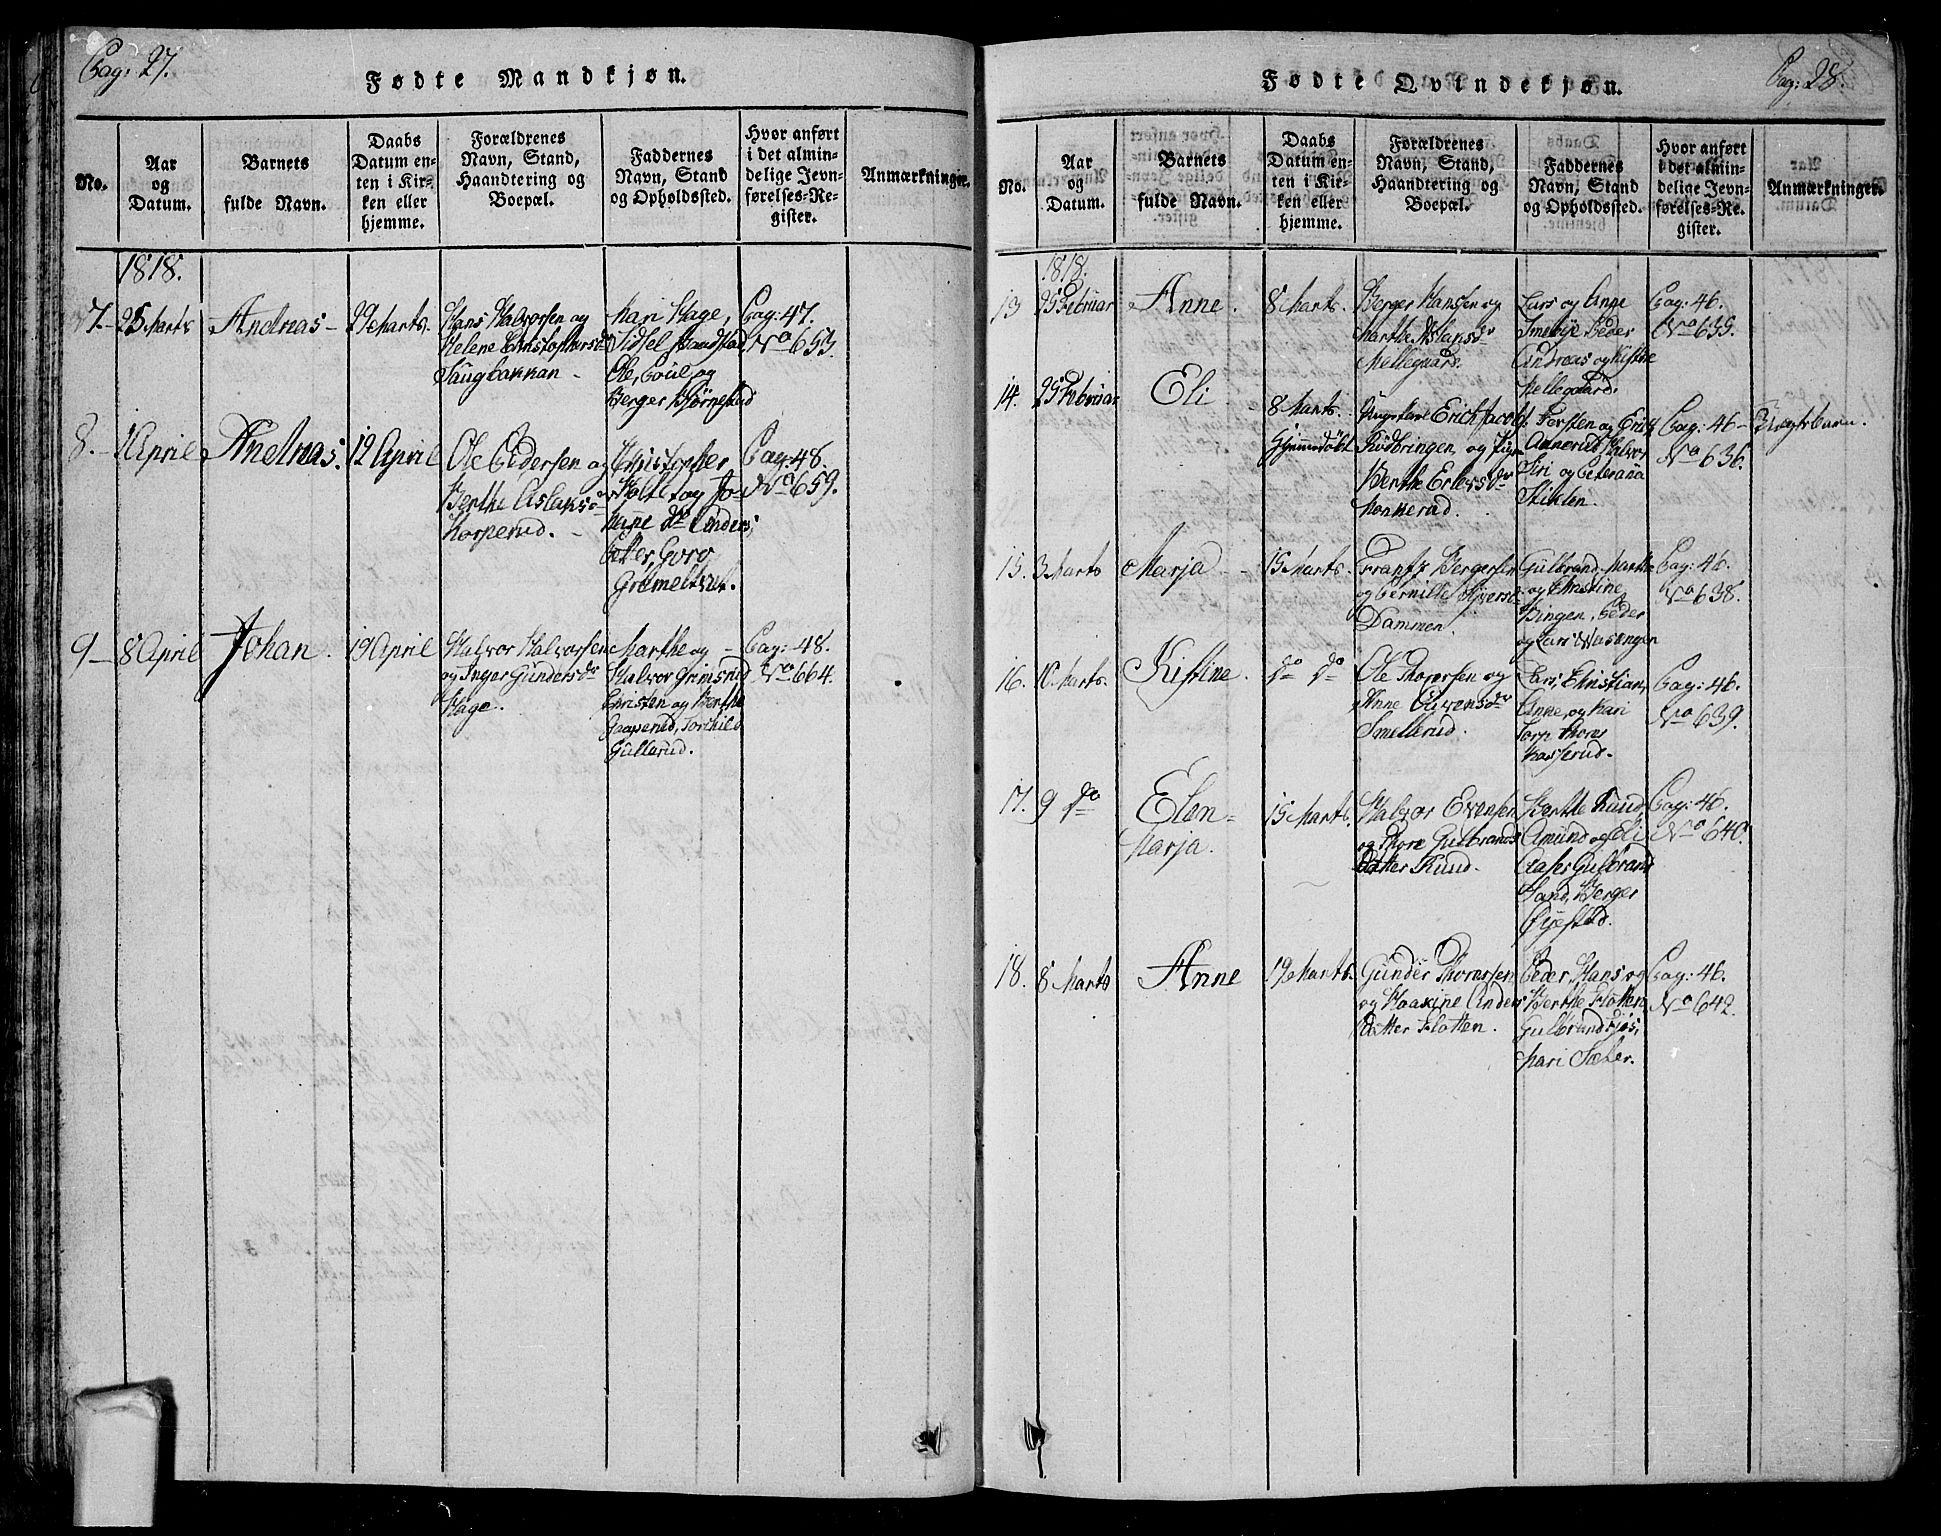 Pag: 27.
Fødte Mandkjøn.
No.
Aar
og
Datum.
Barnets
fulde Navn.
Daabs
Datum en-
ten i Kir-
ken eller
hjemme.
Forældrenes
Navn, Stand,
Haandtering og
Boepæl.
Faddernes
Navn, Stand
og Opholdssted.
Hvor anført
i det almin-
delige Jevn-
førelses-Re-
gister.
Anmærkninger.
1818.
7. 25 Marts
Andreas
29 Marts.
Hans Halvorsen og
Helene Christophersdr
Haugbakkan
Mari Hage,
Sidsel
Ole, Poul og
Berger Bjørnstad
Pag: 47.
No 653.
8. 1 April
Andreas.
12 April
Ole Pedersen og
Berthe Aslaksdr
Torperud.
Christopher
Holt og Jo-
hane do Anders,
Petter, Goro
Grimelsrud.
Pag: 48.
No 659.
9 8 April
Johan.
19 April
Halvor Halvorsen
og Inger Gundersdr
Hage.
Marthe og
Halvor Grimsrud
Christen og Berthe
Gaaserud, Torchild
Gullerud.
Pag: 48.
No 664.
Pag: 28.
Fødte Qvindekjøn.
No.
Aar
og
Datum.
Barnets
fulde Navn.
Daabs
Datum en-
ten i Kir-
ken eller
hjemme.
Forældrenes
Navn, Stand,
Haandtering og
Boepæl.
Faddernes
Navn, Stand
og Opholdssted.
Hvor anført
i det almin-
delige Jevn-
førelses-Re-
gister.
Anmærkninger.
1818.
13 25 Februar
Anne.
8 Marts.
Berger Hansen og
Marthe Aslaksdr
Mellegaard.
Lars og Ane
Smebye Peder
Andreas og Kistine
Mellegaard.
Pag: 46.
No 635.
14. 25 Februar
Eli
8 Marts.
Hjemmedøbt
Ungkarl Erich Jacobs.
og Pigen
Berthe Erichsdr
Monserud.
Torsten og Erich
Annerud Halvor
Siri og
Stiklen.
Pag: 46
No 636.
Uægte barn.
15. 3 Marts
Marja
15 Marts.
Frantz Bergersen
og Pernille Syversdr
Dammen.
Gulbrand, Marthe
og Christine
Bingen, Peder
og Lars
Pag: 46.
No 638.
16. 10 Marts.
Kistine.
do do
Ole Thoresen og
Anne Evensdr
Smellerud.
Lars, Christian,
Anne, og Kari
Torp Thore
Pag: 46.
No 639.
17. 9 do
Elen
Marja.
15 Marts.
Halvor Evensen
og Thore Gulbrands
datter Ruud.
Berthe Ruud,
Amund og Eli
Aaser Gulbrand
Sand, Berger
Øijestad.
Pag: 46.
No 640.
18. 8 Marts
Anne
19 Marts.
Gunder Thoresen
og Maxine Anders
datter Flatten.
Peder, Hans og
Berthe Flatten,
Mari Sæter.
Pag: 46.
No 642.